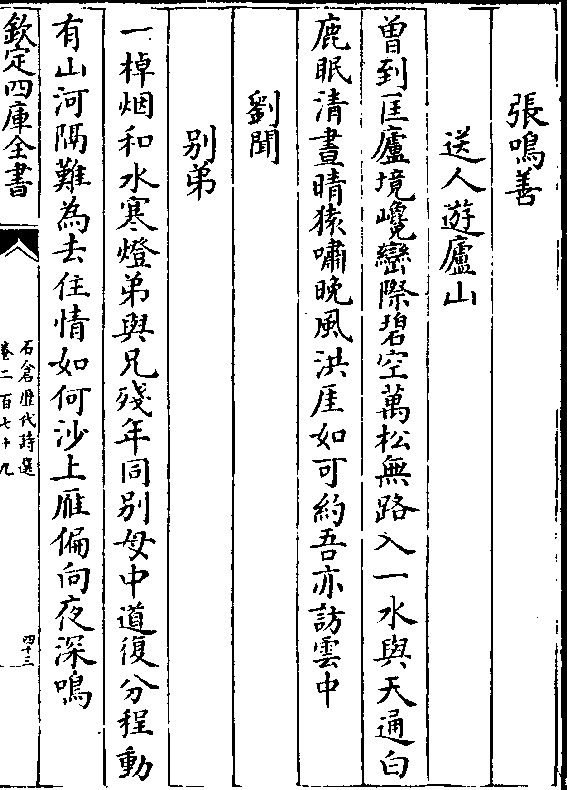 張鳴善
送人遊廬山
曽到匡廬境巉巒際碧空萬松無路入一水與天通白
鹿眠清晝晴猿嘯晚風洪厓如可約吾亦訪雲中
劉聞
别弟
一棹烟和水寒燈弟與兄殘年同别母中道復分程動
有山河隔難為去住情如何沙上雁偏向夜深鳴
欽定四庫全書
石倉歴代詩選
卷二百七十九
四十三